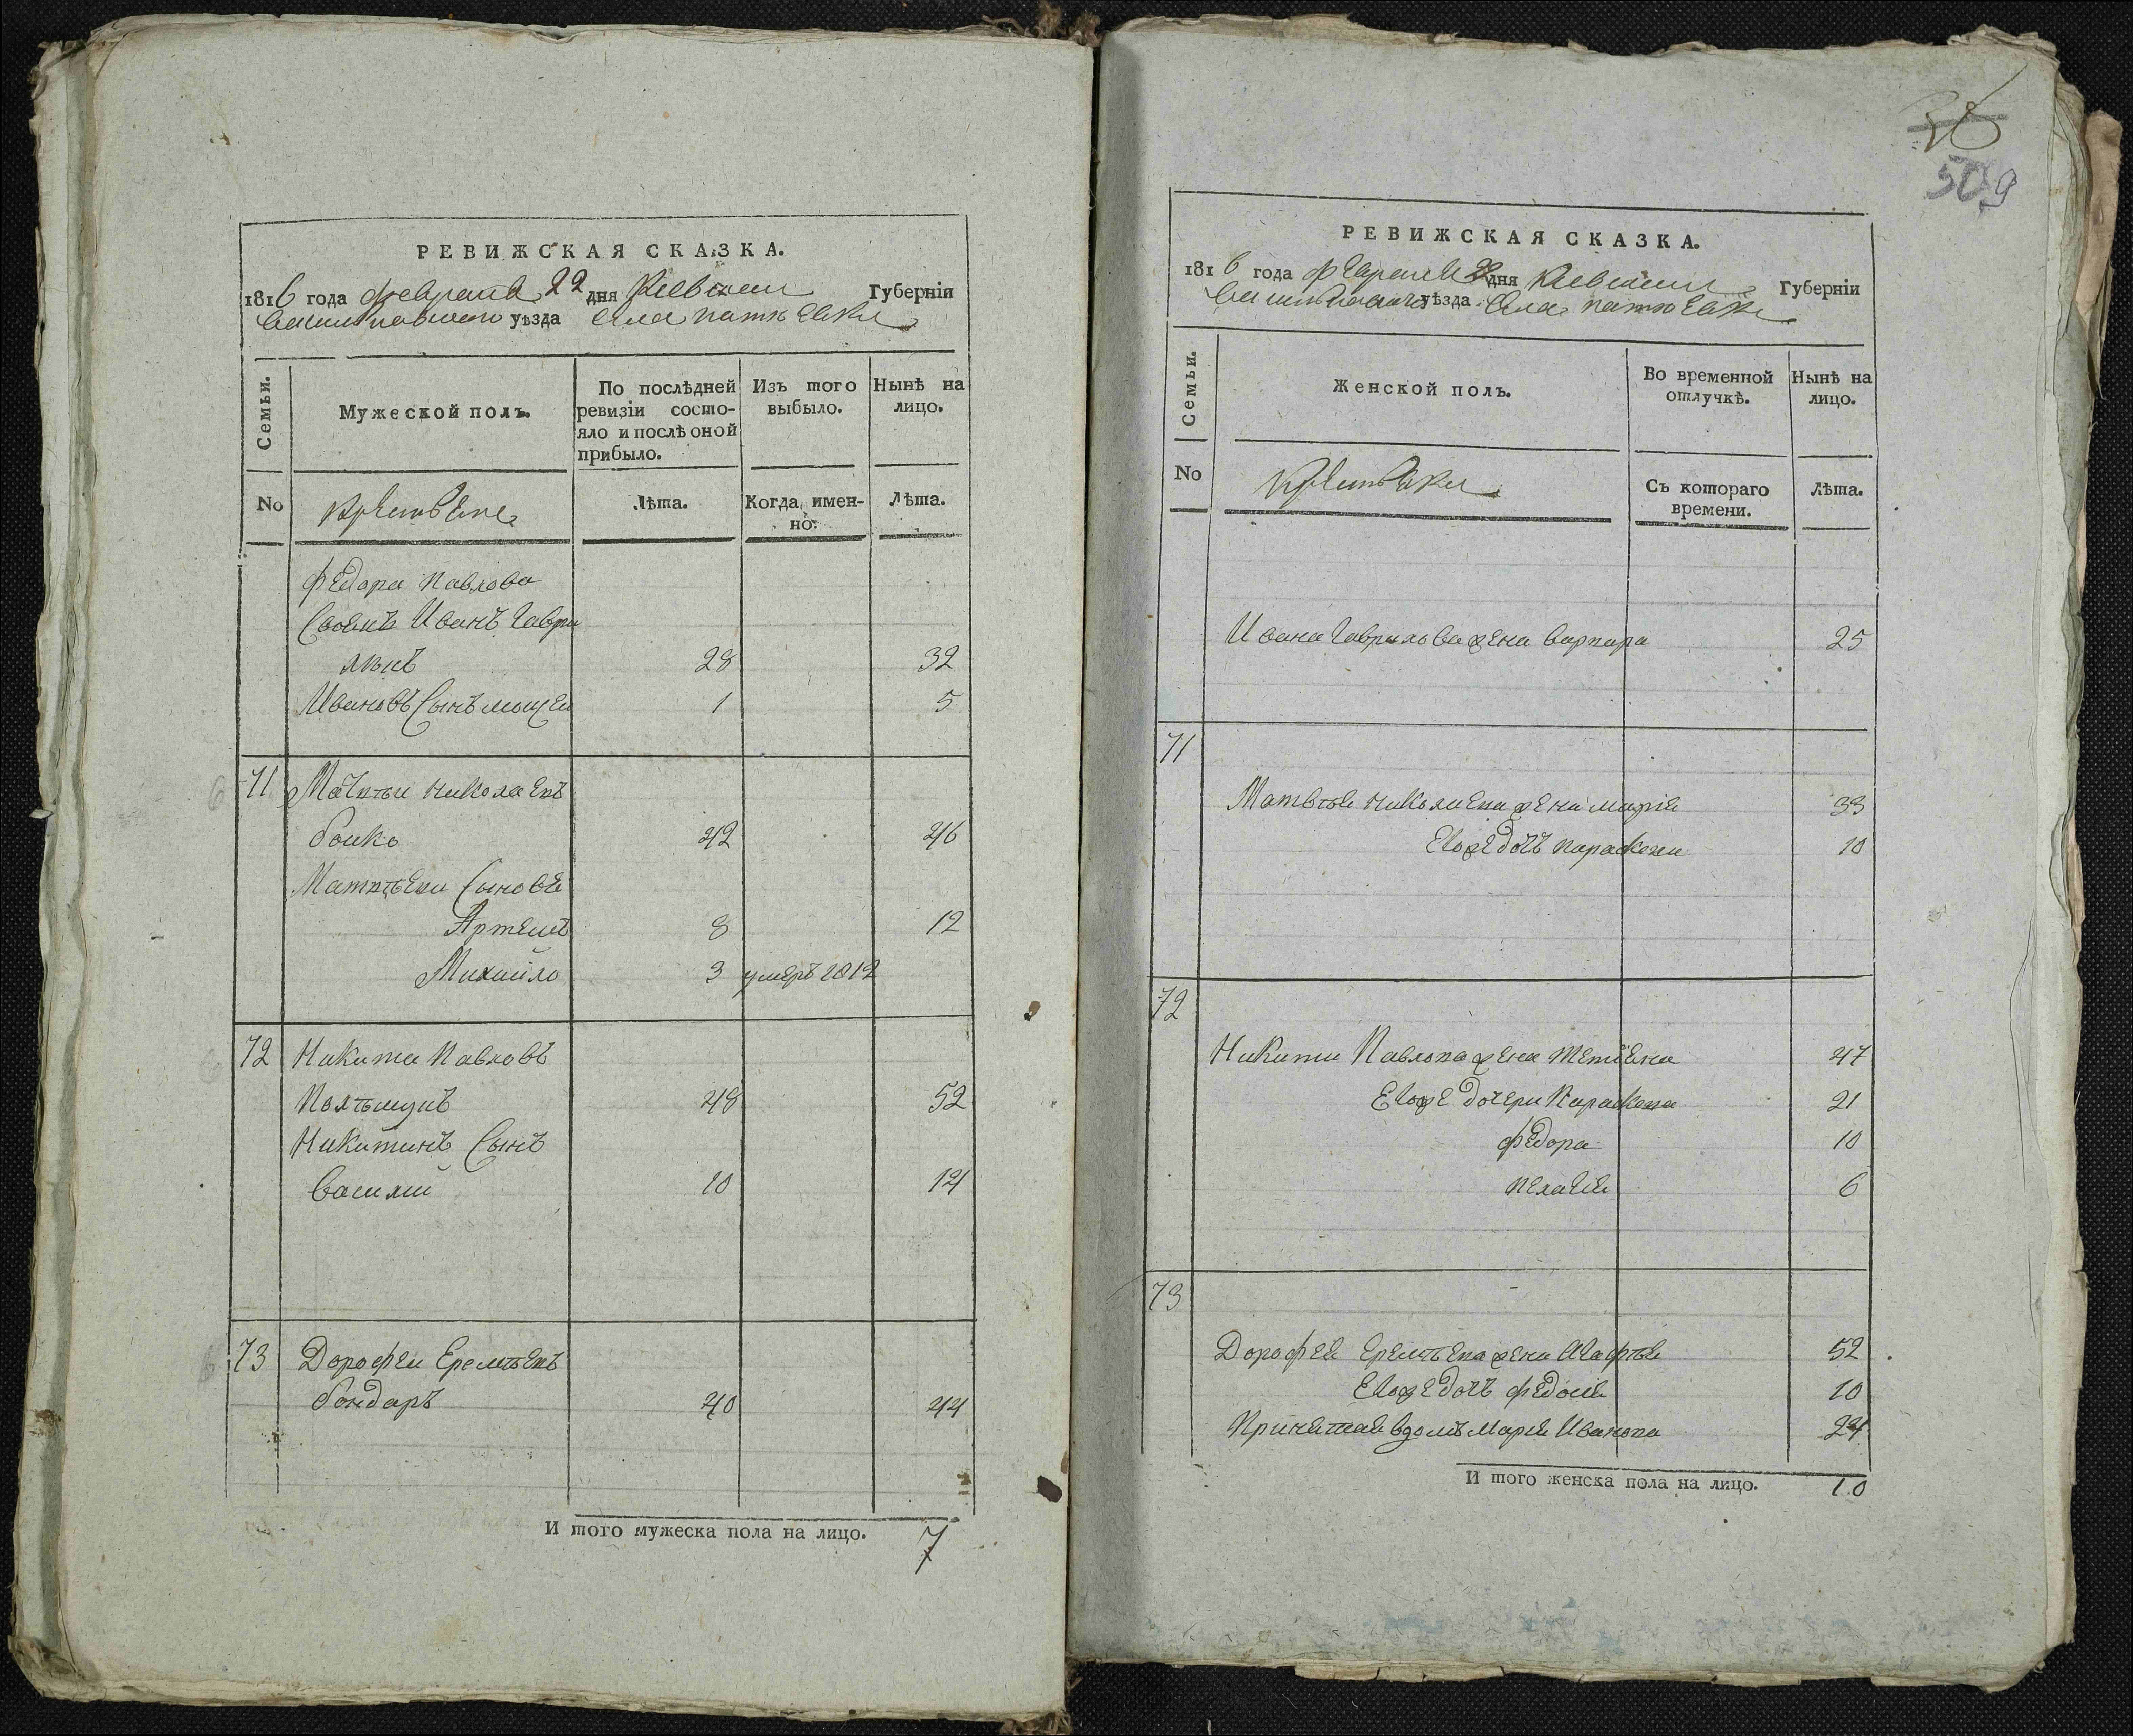 РЕВИЖСКАЯ СКАЗКА.
1816 года февраля 22 дня Киевской Губерніи
васильковского уѣзда села
Семьи.
Мужеской полъ.
По послѣдней ревизіи состояло и послѣ оной прибыло.
Изъ того выбыло.
Нынѣ на лицо.
No
крестьяне
Лѣта.
Когда, именно.
Лѣта.
Федора Павлова
Своякъ Иванъ Гаври
люкъ 28 32
Ивановъ Сынъ 1 5
71 Матвѣй Николаевъ
бойко 42 46
Матвѣева Сыновя
Артемъ 8 12
Михайло 3 умеръ 1812
72 Никита Павловъ
48 52
Никитинъ Сынъ
василий 10 14
73 Дорофей Еремѣевъ
бондаръ 40 44
И того мужеска пола на лицо. 7
509
РЕВИЖСКАЯ СКАЗКА.
1816 года февраля 22 дня Киевской Губерніи
васильковского уѣзда Села
Семьи.
Женской полъ.
Во временной отлучкѣ.
Нынѣ на лицо.
No
крестьянки
Съ котораго времени.
Лѣта.
Ивана Гаврилова жена варвара 25
71
Матвѣя Николаева жена марія 33
Егоже дочъ параскева 10
72
Никиты Павлова жена 47
Егоже дочери Параскева 21
федора 10
пелагея 6
73
Дорофея Еремѣева жена Агафѣя 52
Егоже дочъ федосія 10
Принятая вдомъ Марія Иванова 24
И того женска пола на лицо. 10